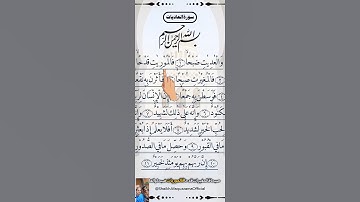 سورة العاديات
بسم الله الرحمن الرحيم
وَالْعَٰدِيَٰتِ ضَبْحًا ١ فَالْمُورِيَٰتِ قَدْحًا
فَالْمُغِيرَٰتِ صُبْحًا ٣ فَأَثَرْنَ بِهِ نَقْعًا
فَوَسَطْنَ بِهِ جَمْعًا إِنَّ الْإِنسَٰنَ لِ
لَكَنُودٌ ٦ وَإِنَّهُ عَلَىٰ ذَٰلِكَ لَشَهِيدٌ ٧ وَ
لِحُبِّ الْخَيْرِ لَشَدِيدٌ ٨ أَفَلَا يَعْلَمُ إِذَا بُعْثِرَ
مَا فِي الْقُبُورِ ٩ وَحُصِّلَ مَا فِي الصُّدُورِ
١٠ إِنَّ رَبَّهُم بِهِمْ يَوْمَئِذٍ لَّخَبِيرٌ ١١